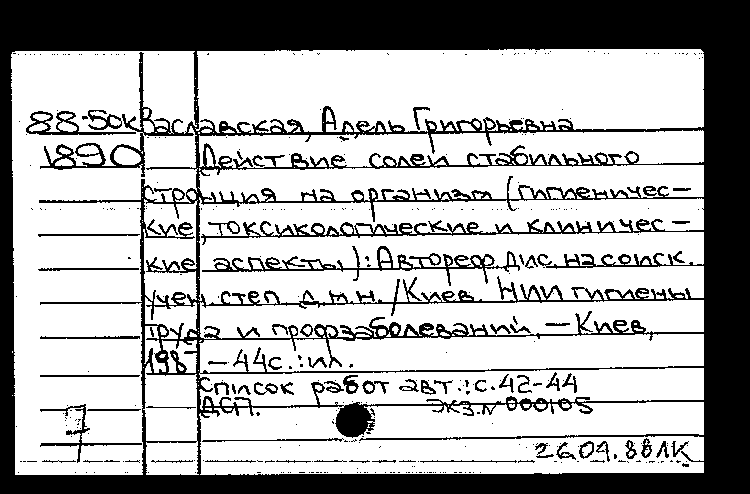 88-5ок Заславская, Адель Григорьевна
1890 Действие солей стабильного
стронция на организм (гигиеничес-
кие, токсикологические и клиничес-
кие аспекты): Автореф. дис. на соиск.
учен. степ. д.м.н. / Киев. НИИ гигиены
труда и профзаболеваний, — Киев,
— 44с.: ил.
Список работ авт.: с. 42-44
ДСП. Экз. N 000105